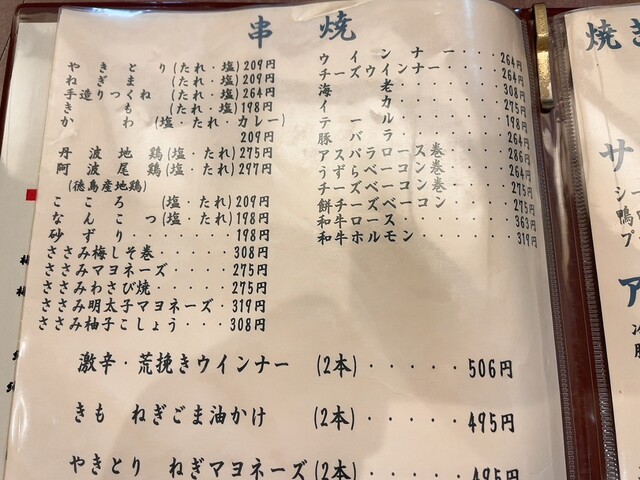 串焼
やきとり(たれ・塩)209円
ねぎま(たれ・塩)209円
手造りつくね(たれ・塩)264円
きも(たれ・塩)198円
かわ(塩・たれ・カレー)
209円
丹波地鶏(塩・たれ)275円
阿波尾鶏(塩・たれ)297円
(徳島産地鶏)
こころ(塩・たれ)209円
なんこつ(塩・たれ)198円
砂ずり・・・・・・・198円
ささみ梅しそ巻・・・・・308円
ささみマヨネーズ・・・・275円
ささみわさび焼・・・・・275円
ささみ明太子マヨネーズ・319円
ささみ柚子こしょう・・・308円
ウインナー・・・・264円
チーズウインナー・・・264円
海老・・・・308円
イカ・・・・275円
テール・・・・198円
豚バラ・・・・264円
アスパラベーコン巻・・・286円
うずらベーコン巻・・・264円
チーズベーコン巻・・・275円
餅チーズベーコン・・・275円
和牛ロース・・・・363円
和牛ホルモン・・・・319円
激辛・荒挽きウインナー (2本)・・・・・506円
きも ねぎごま油かけ (2本)・・・・・495円
やきとり ねぎマヨネーズ(2本)・・・・・495円
焼き
サ
シ
鴨
プ
ア